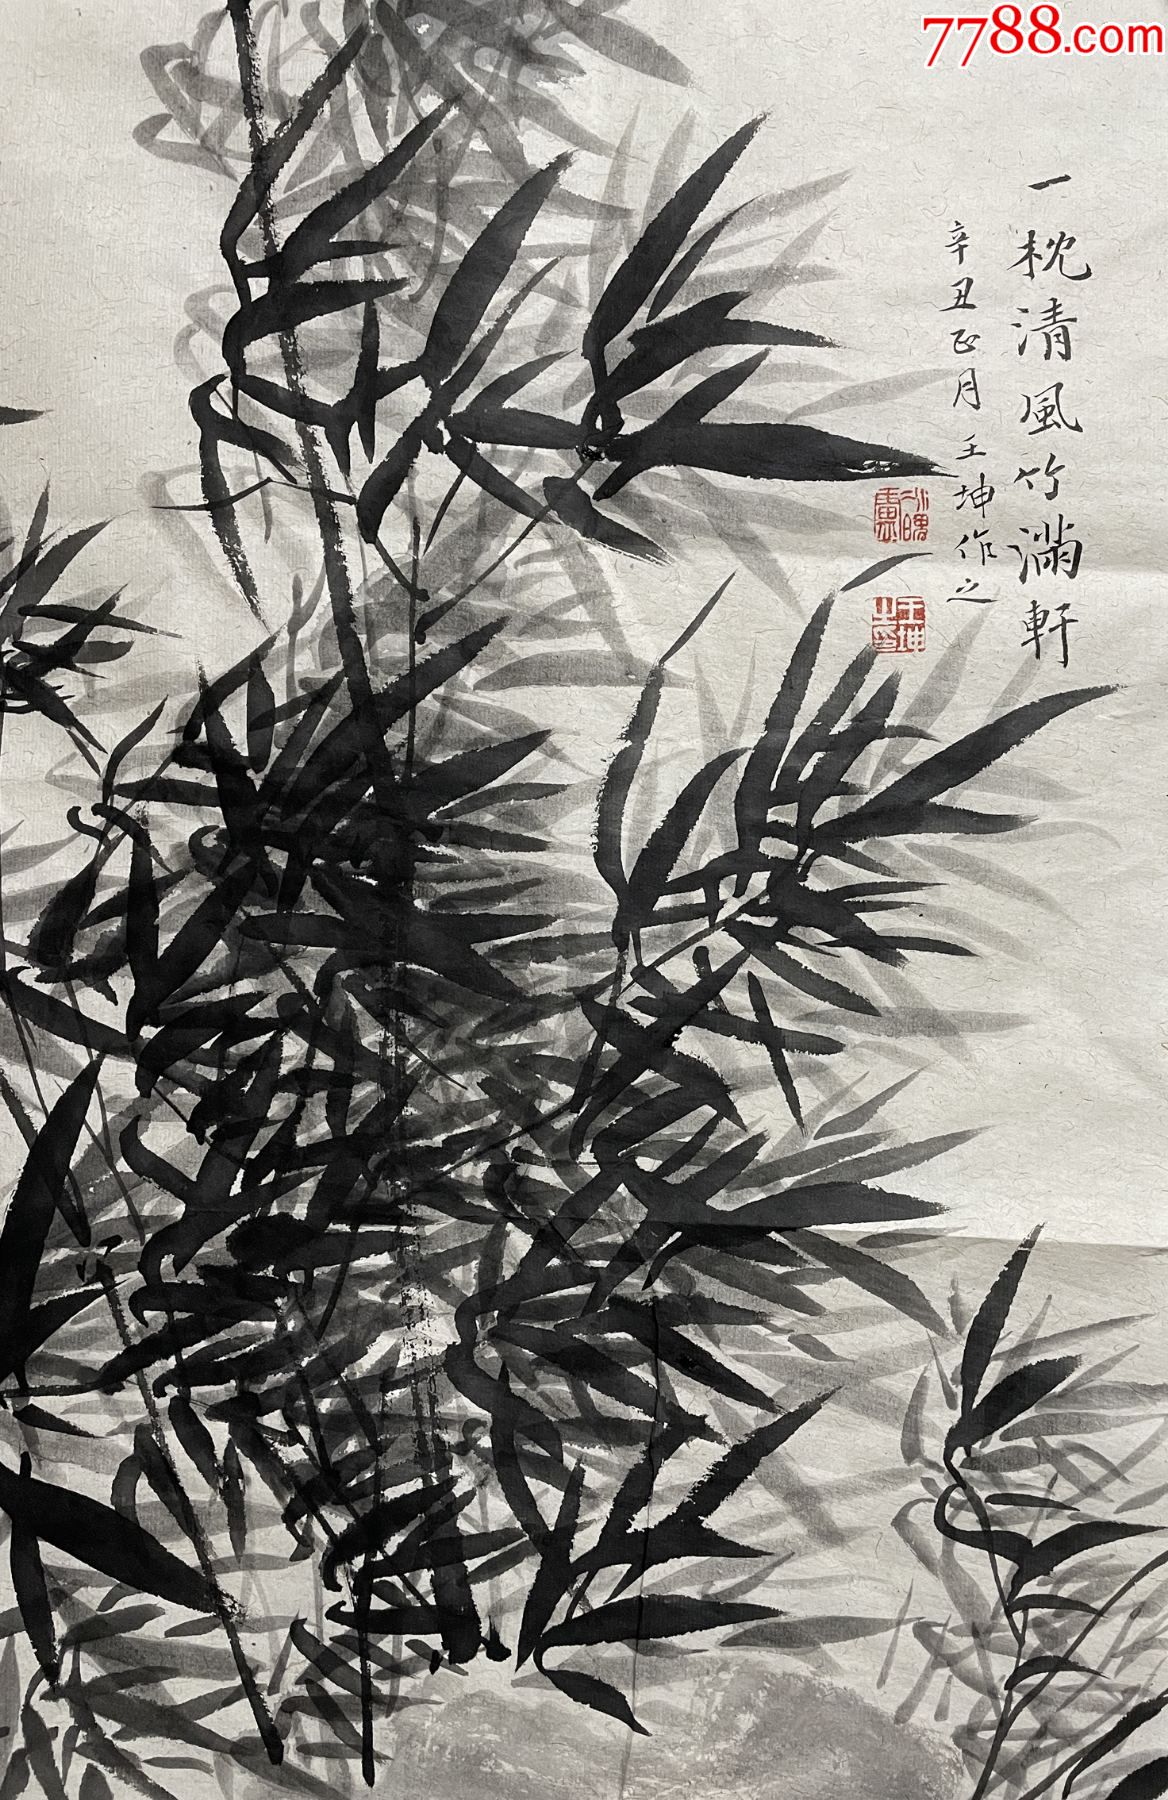 7788.com
一枕清風竹滿軒
辛丑正月王坤作之
王坤之印